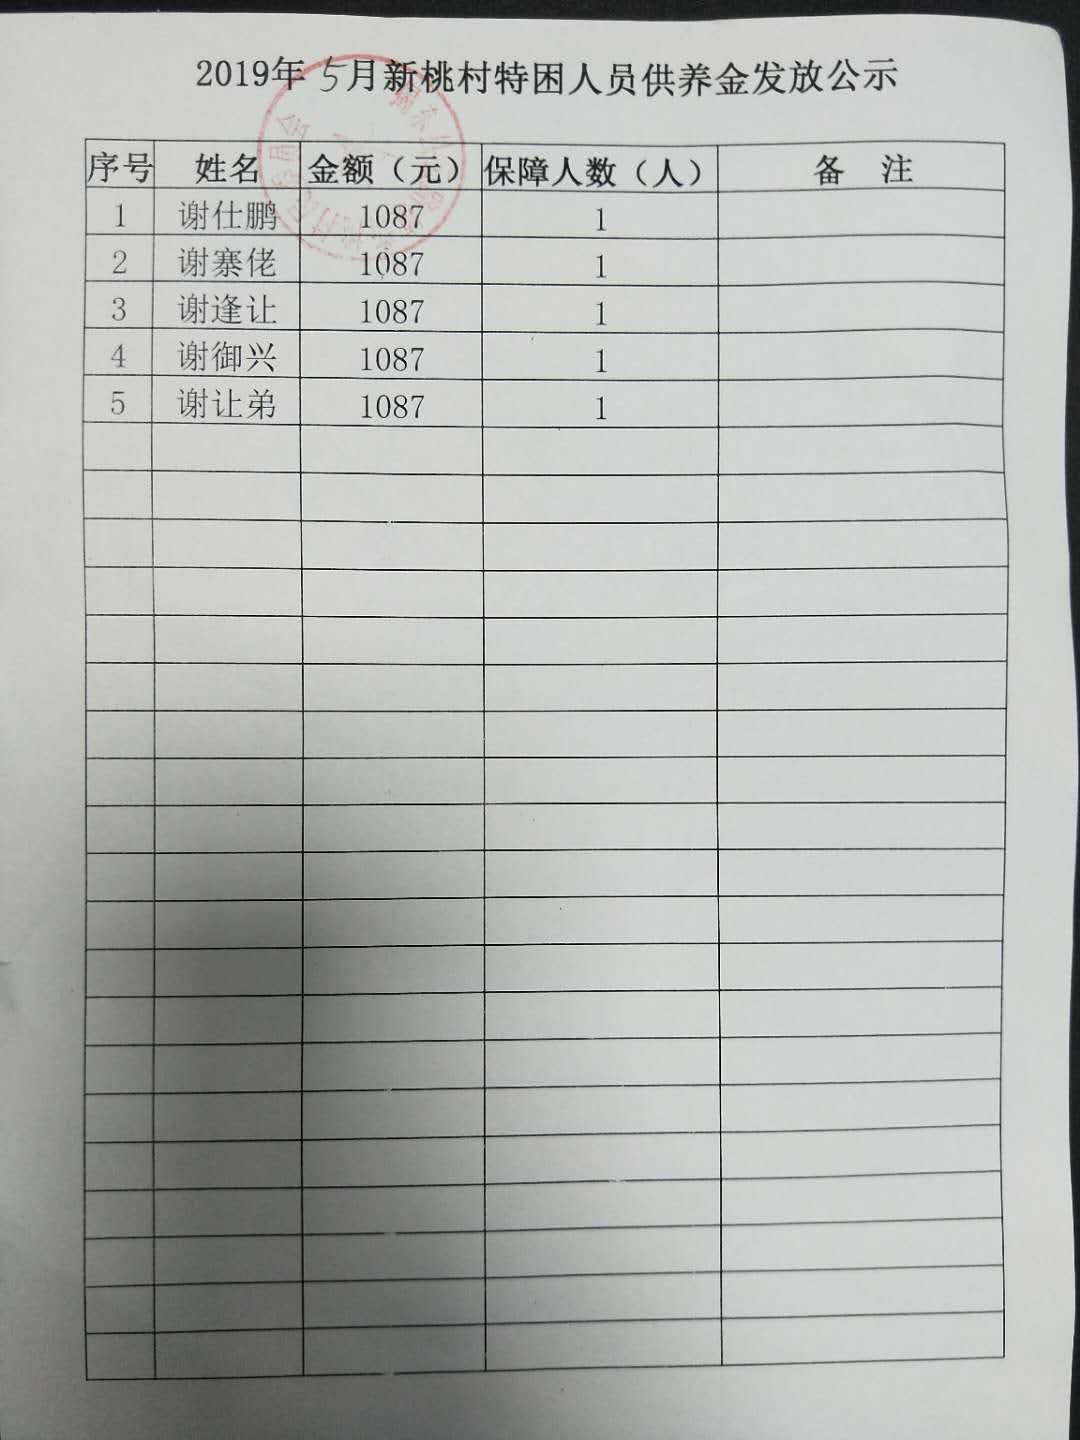 2019年5月新桃村特困人员供养金发放公示
序号 姓名 金额（元） 保障人数（人） 备 注
1 谢仕鹏 1087 1
2 谢寨佬 1087 1
3 谢逢让 1087 1
4 谢御兴 1087 1
5 谢让弟 1087 1